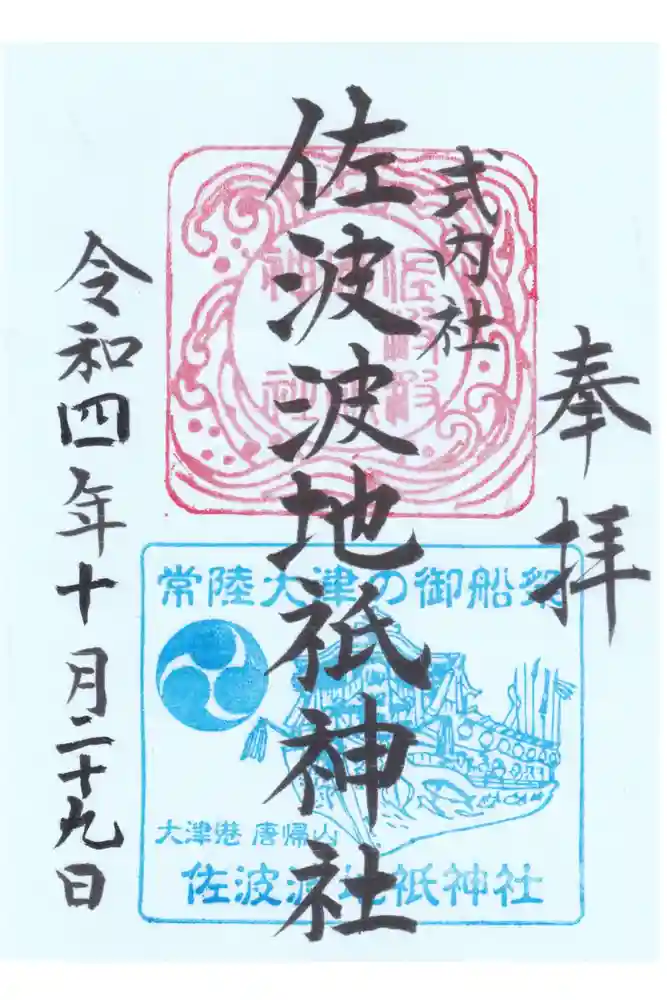 奉拝
式内社
佐波波地祇神社
令和四年十月二十九日
佐波波地祇神社
常陸大津の御船祭
大津港 唐帰山
佐波波地祇神社